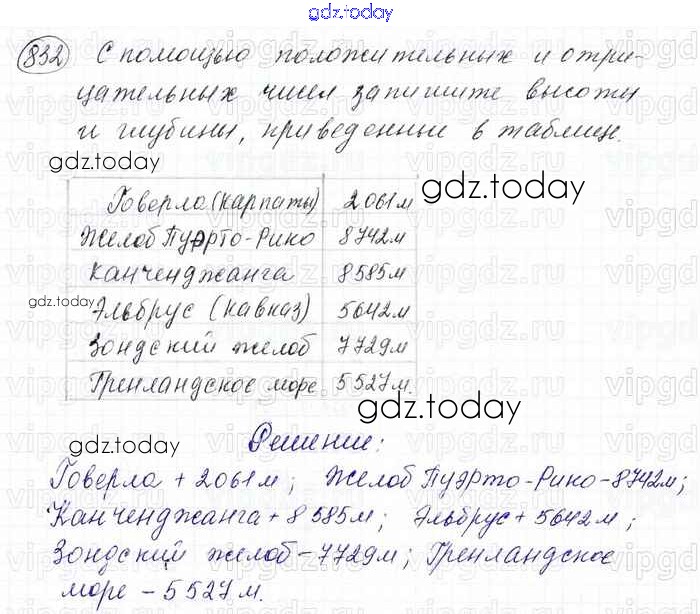 gdz.today
832 С помощью положительных и отри-
цательных чисел запишите высоты
и глубины, приведенные в таблице.
gdz.today
gdz.today
Говерла (Карпаты) 2061м
Желоб Пуэрто-Рико 8742м
Канченджанга 8585м
gdz.today
Эльбрус (Кавказ) 5642м
Зондский желоб 7729м
Гренландское море 5527м.
gdz.today
gdz.today
Решение:
Говерла + 2061м; Желоб Пуэрто-Рико - 8742м;
Канченджанга + 8585м; Эльбрус + 5642м;
Зондский желоб - 7729м; Гренландское
море - 5527м.